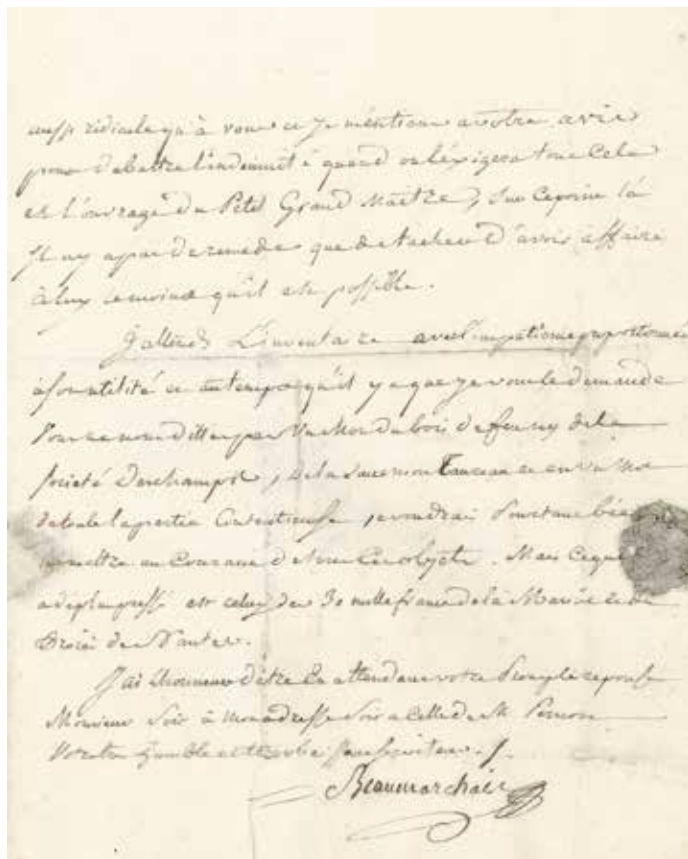 aussi ridicule qu'à vous et je m'en tiens a votre avis
pour debattre l'indemnité quand on l'éxigera tout Cela
est l'ouvrage du Petit Grand Maitre, sur Ce point là
Il n'y a pas de remede que de tacher d'avoir affaire
à luy le moins qu'il est possible.
J'attends L'inventaire avec l'impatience proportionnée
à son utilité et au temps qu'il y a que je vous le demande
Vous ne nous dittes pas un Mot du bois de de la
Société Deschamps, de la et en un Mot
de toute la partie Contentieuse, je voudrais Pourtant bien
mettre au Courant de tous Ces objets. Mais Ce qui
a de plus pressé est celuy des 30 mille francs de la Marine et de
de Nantes.
J'ai l'honneur d'être En attendant votre Prompte reponse
Monsieur Soit à Mon adresse Soit a Celle de M.
Votre tres humble et tres obeissant serviteur.
Beaumarchais